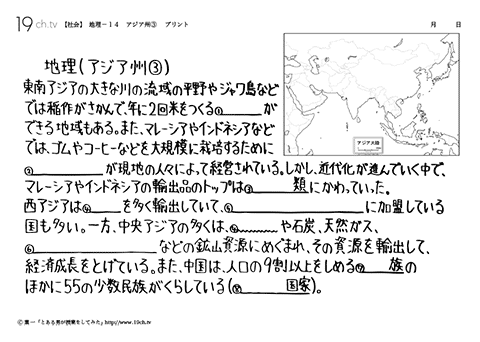 19 ch.tv 【社会】 地理－14 アジア州③ プリント 月 日
地理(アジア州③)
東南アジアの大きな川の流域の平野やジャワ島など
では稲作がさかんで、年に2回米をつくる①______が
できる地域もある。また、マレーシアやインドネシアなど
では、ゴムやコーヒーなどを大規模に栽培するために
②________が現地の人々によって経営されている。しかし、近代化が進んでいく中で、
マレーシアやインドネシアの輸出品のトップは③______類にかわっていった。
西アジアは④____を多く輸出していて、⑤____________に加盟している
国も多い。一方、中央アジアの多くは、⑥______や石炭、天然ガス、
⑦____________などの鉱山資源にめぐまれ、その資源を輸出して、
経済成長をとげている。また、中国は、人口の9割以上をしめる⑧____族の
ほかに55の少数民族がくらしている(⑨______国家)。
アジア大陸
© 葉一「とある男が授業をしてみた」http://www.19ch.tv